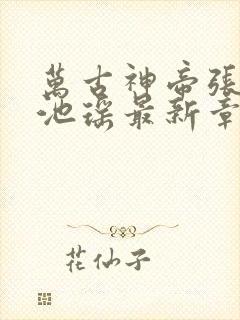 萬古神帝張
池瑤最新章
花仙子